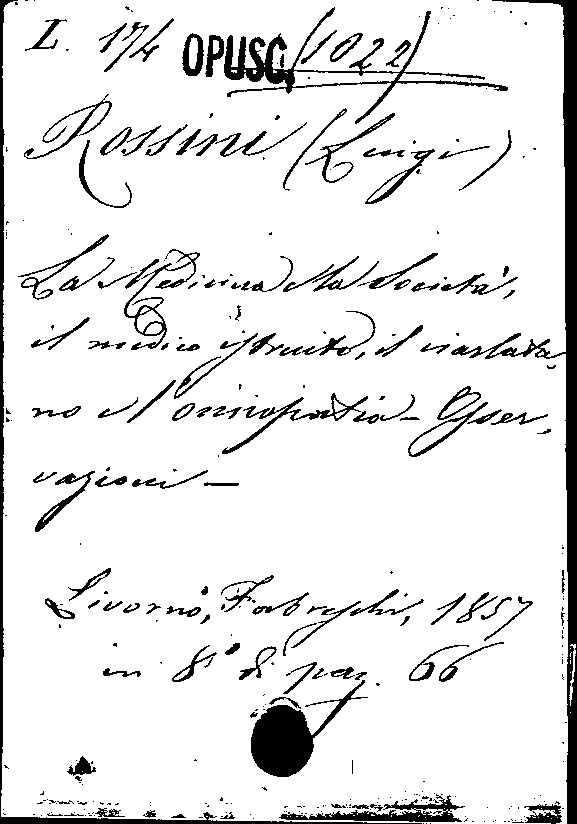 L. 174 OPUSC. (1022)
Rossini (Luigi)
La Medicina e la Società,
il medico istruito, il ciarlata-
no e l'omiopatia - Osser-
vazioni -
Livorno, Fabreschi, 1857
in 8° di pag. 66